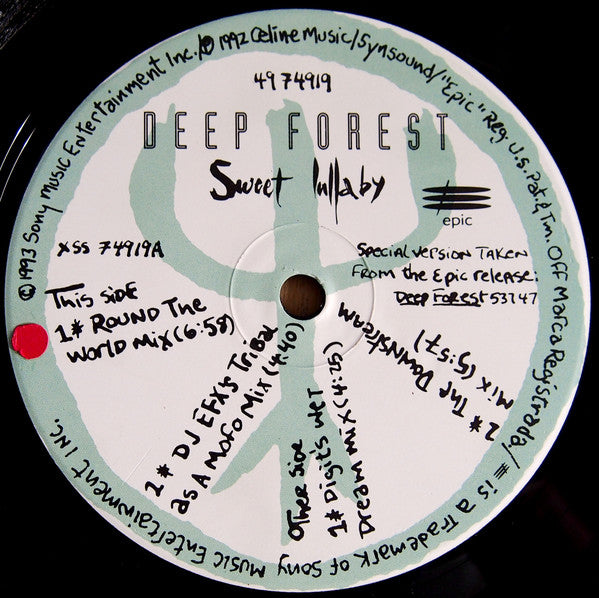 © 1993 Sony Music Entertainment Inc./℗ 1992 Celine Music/Synsound/"Epic" Reg. U.S. Pat. & Tm. Off Marca Registrada./ is a Trademark of Sony Music Entertainment Inc.
49 74919
DEEP FOREST
Sweet Lullaby
epic
XSS 74919A
Special version Taken
From the Epic release:
Deep Forest 53747
This side
1# Round The
World Mix (6:58)
2# DJ EFX's Tribal
as A Mofo Mix (4:40)
Other side
1# Digit's Wet
Dream mix (4:25)
2# The Downstream
Mix (5:57)